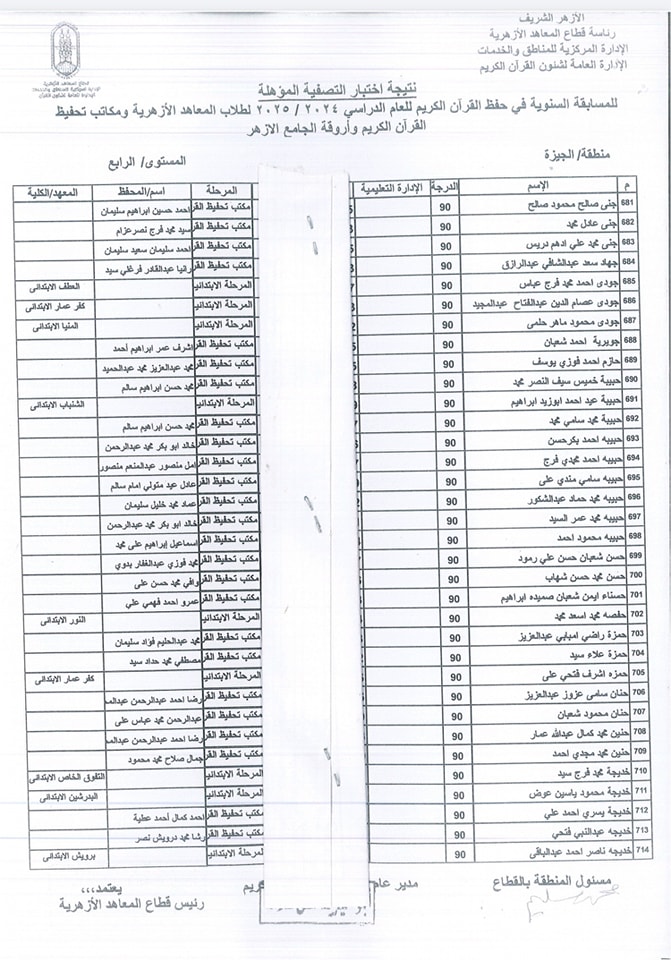 الأزهر الشريف
رئاسة قطاع المعاهد الأزهرية
الإدارة المركزية للمناطق والخدمات
الإدارة العامة لشئون القرآن الكريم
قطاع المعاهد الأزهرية
نتيجة اختبار التصفية المؤهلة
للمسابقة السنوية في حفظ القرآن الكريم للعام الدراسي ٢٠٢٤ / ٢٠٢٥ لطلاب المعاهد الأزهرية ومكاتب تحفيظ
القرآن الكريم وأروقة الجامع الازهر
منطقة/ الجيزة المستوى/ الرابع
م الإسم الدرجة الإدارة التعليمية المرحلة اسم/المحفظ المعهد/الكلية
681 جنى صالح محمود صالح 90 مكتب تحفيظ القر احمد حسين ابراهيم سليمان
682 جنى عادل محمد 90 مكتب تحفيظ القر سيد محمد فرج نصرعزام
683 جنى محمد علي ادهم دريس 90 مكتب تحفيظ القر احمد سليمان سعيد سليمان
684 جهاد سعد عبدالشافي عبدالرازق 90 مكتب تحفيظ القر رانيا عبدالقادر فرغلي سيد
685 جودى احمد محمد فرج عباس 90 المرحلة الابتدائي العطف الابتدائى
686 جودى عصام الدين عبدالفتاح عبدالمجيد 90 المرحلة الابتدائي كفر عمار الابتدائى
687 جودى محمود ماهر حلمى 90 المرحلة الابتدائي المنيا الابتدائى
688 جويرية احمد شعبان 90 مكتب تحفيظ القر اشرف عمر ابراهيم أحمد
689 حازم احمد فوزي يوسف 90 مكتب تحفيظ القر محمد عبدالعزيز محمد عبدالحميد
690 حبيبة خميس سيف النصر محمد 90 مكتب تحفيظ القر محمد حسن ابراهيم سالم
691 حبيبة عيد احمد ابوزيد ابراهيم 90 المرحلة الابتدائي الشنباب الابتدائى
692 حبيبة محمد سامي محمد 90 مكتب تحفيظ القر محمد حسن ابراهيم سالم
693 حبيبه احمد بكرحسن 90 مكتب تحفيظ القر خالد ابو بكر محمد عبدالرحمن
694 حبيبه احمد محمدي فرج 90 مكتب تحفيظ القر امل منصور عبدالمنعم منصور
695 حبيبه سامي مندي على 90 مكتب تحفيظ القر عادل عيد متولي امام سالم
696 حبيبه محمد حماد عبدالشكور 90 مكتب تحفيظ القر عماد محمد خليل سليمان
697 حبيبه محمد عمر السيد 90 مكتب تحفيظ القر خالد ابو بكر محمد عبدالرحمن
698 حبيبه محمود احمد 90 مكتب تحفيظ القر اسماعيل إبراهيم على محمد
699 حسن شعبان حسن علي رمود 90 مكتب تحفيظ القر محمد فوزي عبدالغفار بدوي
700 حسن محمد حسن شهاب 90 مكتب تحفيظ القر وافي محمد حسن على
701 حسناء ايمن شعبان صميده ابراهيم 90 مكتب تحفيظ القر عمرو احمد فهمي علي
702 حفصه محمد اسعد محمد 90 المرحلة الابتدائي النور الابتدائى
703 حمزة راضي امبابي عبدالعزيز 90 مكتب تحفيظ القر محمد عبدالحليم فؤاد سليمان
704 حمزة علاء سيد 90 مكتب تحفيظ القر مصطفي محمد حداد سيد
705 حمزه اشرف فتحي على 90 المرحلة الابتدائي كفر عمار الابتدائى
706 حنان سامى عزوز عبدالعزيز 90 مكتب تحفيظ القر رضا احمد عبدالرحمن عبدالم
707 حنان محمود شعبان 90 مكتب تحفيظ القر عبدالرحمن محمد عباس على
708 حنين محمد كمال عبدالله عمار 90 مكتب تحفيظ القر رضا احمد عبدالرحمن عبدالم
709 حنين محمد مجدي احمد 90 مكتب تحفيظ القر جمال صلاح محمد محمود
710 خديجة محمد فرج سيد 90 المرحلة الابتدائي التفوق الخاص الابتدائى
711 خديجة محمود ياسين عوض 90 المرحلة الابتدائي البدرشين الابتدائى
712 خديجة يسري احمد علي 90 مكتب تحفيظ القر احمد كمال أحمد عطية
713 خديجه عبدالنبي فتحي 90 مكتب تحفيظ القر رشا محمد درويش نصر
714 خديجه ناصر احمد عبدالباقى 90 المرحلة الابتدائي برويش الابتدائى
مسئول المنطقة بالقطاع مدير عام كريم يعتمد،،،
رئيس قطاع المعاهد الأزهرية